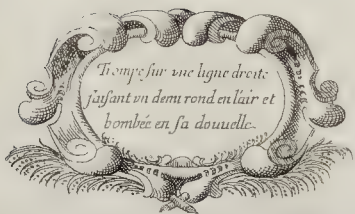 Trompe sur une ligne droite
faisant vn demi rond en l'air et
bombée en sa douuelle.